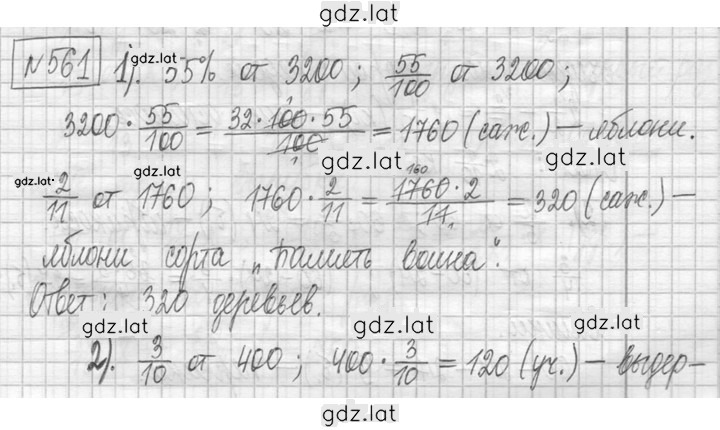 gdz.lat
№561 1). 55% от 3200; 55/100 от 3200;
gdz.lat
3200 · 55/100 = 32 · 100 · 55 / 100 = 1760 (саж.) – яблони.
gdz.lat gdz.lat gdz.lat
2/11 от 1760; 1760 · 2/11 = 1760 · 2 / 11 = 320 (саж.) –
яблони сорта „Память воина“.
Ответ: 320 деревьев.
gdz.lat gdz.lat gdz.lat
2). 3/10 от 400; 400 · 3/10 = 120 (уч.) – выдер–
gdz.lat